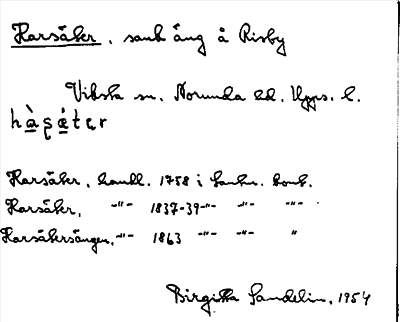 Harsäker, samt äng å Risby
Viksta sn. Norunda hd. Upps. l.
hàṣǝ́tǝr
Harsäker, handl. 1758 i Lantm. kont.
Harsäker, -"- 1837-39 -"- -"- -"-
Harsäkersängen, -"- 1863 -"- -"- "
Birgitta Sandelin, 1954